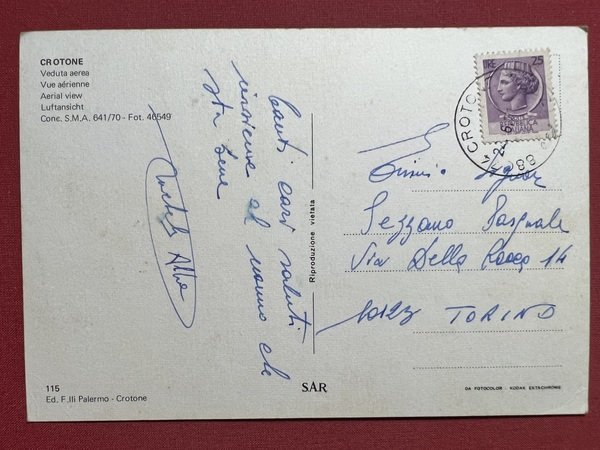 CROTONE
Veduta aerea
Vue aérienne
Aerial view
Luftansicht
Conc. S.M.A. 641/70 - Fot. 46549
Tanti cari saluti
insieme al nonno che
sta bene
Riproduzione vietata
LIRE 25
REPUBBLICA
ITALIANA
CROTO
Pezzano Pasquale
Via Della Rocca 14
10123 TORINO
115
Ed. F.lli Palermo - Crotone
SAR
DA FOTOCOLOR - KODAK EKTACHROME